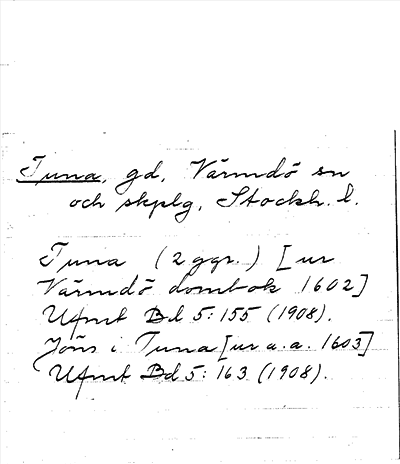 Tuna, gd, Värmdö sn
och skplg, Stockh. l.
Tuna (2 ggr.) [ur
Värmdö dombok 1602]
Ufmt Bd 5: 155 (1908).
Jöns i Tuna [ur a.a. 1603]
Ufmt Bd 5: 163 (1908).